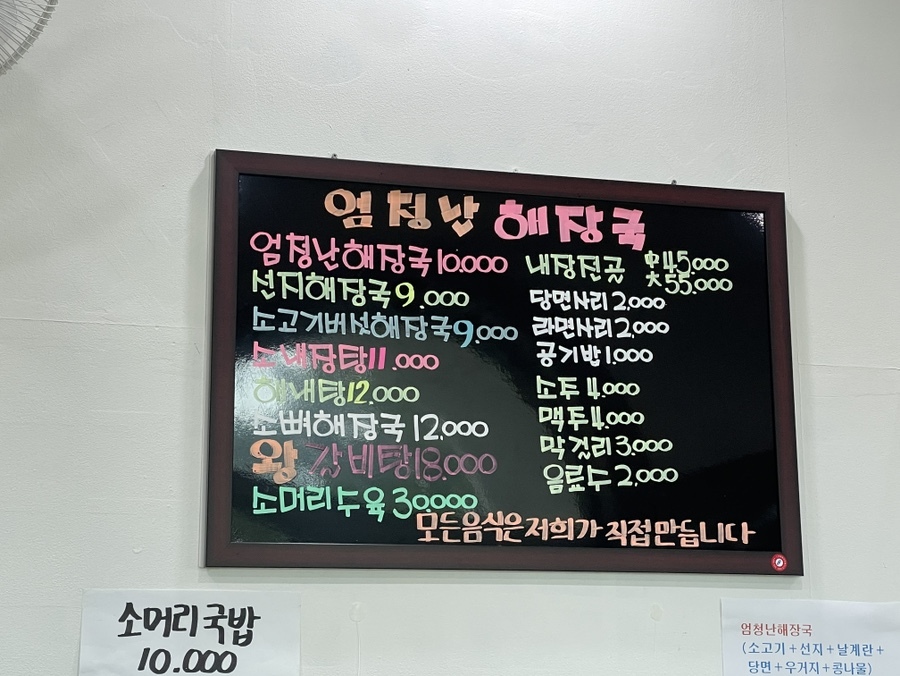 엄청난 해장국
엄청난해장국 10.000
선지해장국 9.000
소고기버섯해장국 9,000
소내장탕 11.000
해내탕 12.000
소뼈해장국 12,000
왕갈비탕 18.000
소머리수육 30.000
내장전골 中 45,000
大 55.000
당면사리 2,000
라면사리 2,000
공기밥 1.000
소주 4.000
맥주 4.000
막걸리 3.000
음료수 2,000
모든음식은 저희가 직접 만듭니다
소머리국밥
10.000
엄청난해장국
(소고기+선지+날계란+
당면+우거지+콩나물)